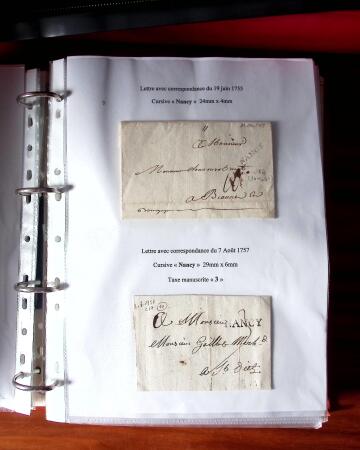 Lettre avec correspondance du 19 juin 1755
Cursive « Nancy » 24mm x 4mm
A Monsieur
Monsieur
NANCY
a Beaune
Lettre avec correspondance du 7 Août 1757
Cursive « Nancy » 29mm x 6mm
Taxe manuscrite « 3 »
A Monsieur NANCY
Monsieur
a St Diez